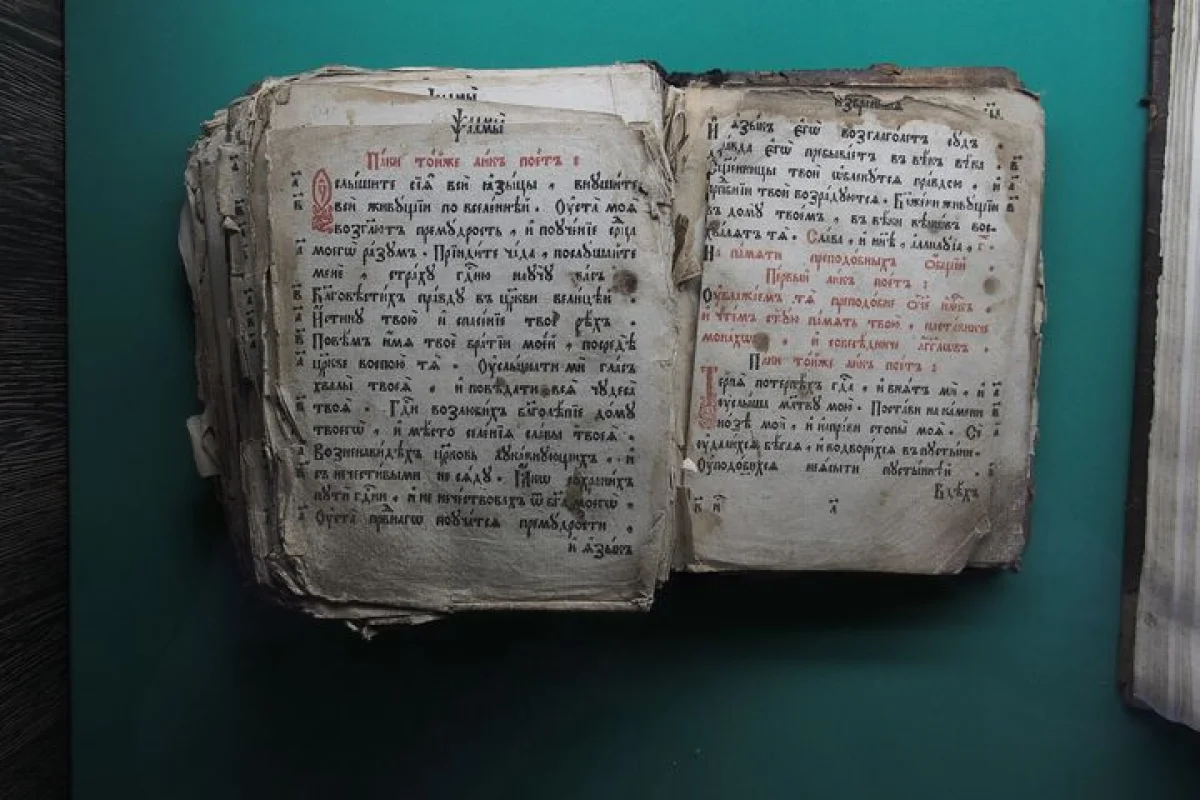 Ѱалмы́
Па́ки то́йже ли́къ пое́тъ :
Оуслы́шите сїѧ̀ всѝ ꙗ҆зы́цы , внꙋши́те
всѝ живꙋ́щїи по вселе́ннѣй . Оу҆ста̀ моѧ̀
возг҃лютъ премꙋ́дрость , и҆ поꙋче́нїе се́рⷣца
моегѡ̀ ра́зꙋмъ . Прїиди́те ча́да , послꙋ́шайте
менѐ , стра́хꙋ гдⷭ҇ню наꙋчꙋ̀ ва́съ
Бл҃говѣсти́хъ пра́вдꙋ въ цр҃кви вели́цѣй .
И҆́стинꙋ твою̀ и҆ спасе́нїе твоѐ рѣ́хъ .
Повѣ́мъ и҆́мѧ твоѐ бра́тїи мое́й , посредѣ̀
цр҃кве воспою̀ тѧ̀ . Оу҆слы́шати мѝ гла́съ
хвалы̀ твоеѧ̀ , и҆ повѣ́дати всѧ̀ чꙋдеса̀
твоѧ̀ . Гдⷭ҇и возлюби́хъ бл҃голѣ́пїе до́мꙋ
твоегѡ̀ , и҆ мѣ́сто селе́нїѧ сла́вы твоеѧ̀ .
Возненави́дѣхъ цр҃ковь лꙋка́внꙋющихъ , и҆
съ нечести́выми не сѧ́дꙋ . Ꙗ҆́кѡ сохрани́хъ
пꙋтѝ гдⷭ҇ни , и҆ не нече́ствовахъ ѿ бг҃а моегѡ̀ .
Оу҆ста̀ пра́внагѡ поꙋча́тсѧ премꙋ́дрости .
и҆ ꙗ҆зы́къ
И҆ ꙗ҆зы́къ є҆гѡ̀ возглаго́летъ сꙋ́дъ
пра́вда є҆гѡ̀ пребыва́етъ въ вѣ́къ вѣ́ка .
твоѝ ѡ҆блекꙋ́тсѧ пра́вдою , и҆
твоѝ возра́дꙋютсѧ . Бл҃же́ни живꙋ́щїи
въ до́мꙋ твое́мъ , въ вѣ́ки вѣкѡ́въ вос-
хва́лѧтъ тѧ̀ . Сла́ва , и҆ ны́нѣ , а҆ллилꙋ́їа ,
На па́мѧти преподо́бныхъ ѻ҆́бщїй
Пе́рвый ли́къ пое́тъ :
Оу҆блажа́емъ тѧ̀ преподо́бне ѻ҆́ч҃е
и҆ чте́мъ ст҃ꙋ́ю па́мѧть твою̀ , наста́вниче
мона́хѡвъ , и҆ собесѣ́дниче а҆́гг҃лѡвъ .
Па́ки то́йже ли́къ пое́тъ :
Терпѧ̀ потерпѣ́хъ гдⷭ҇а , и҆ внѧ́тъ мѝ , и҆
оу҆слы́ша мл҃твꙋ мою̀ . Поста́ви на ка́мени
но́зѣ моѝ , и҆ напра́ви стопы̀ моѧ̀ . Сѐ
оу҆дали́хсѧ бѣ́гаѧ , и҆ водвори́хсѧ въ пꙋсты́ни .
Оу҆подо́бихсѧ неѧ́сыти пꙋсты́ннѣй .
Бдѣ́хъ